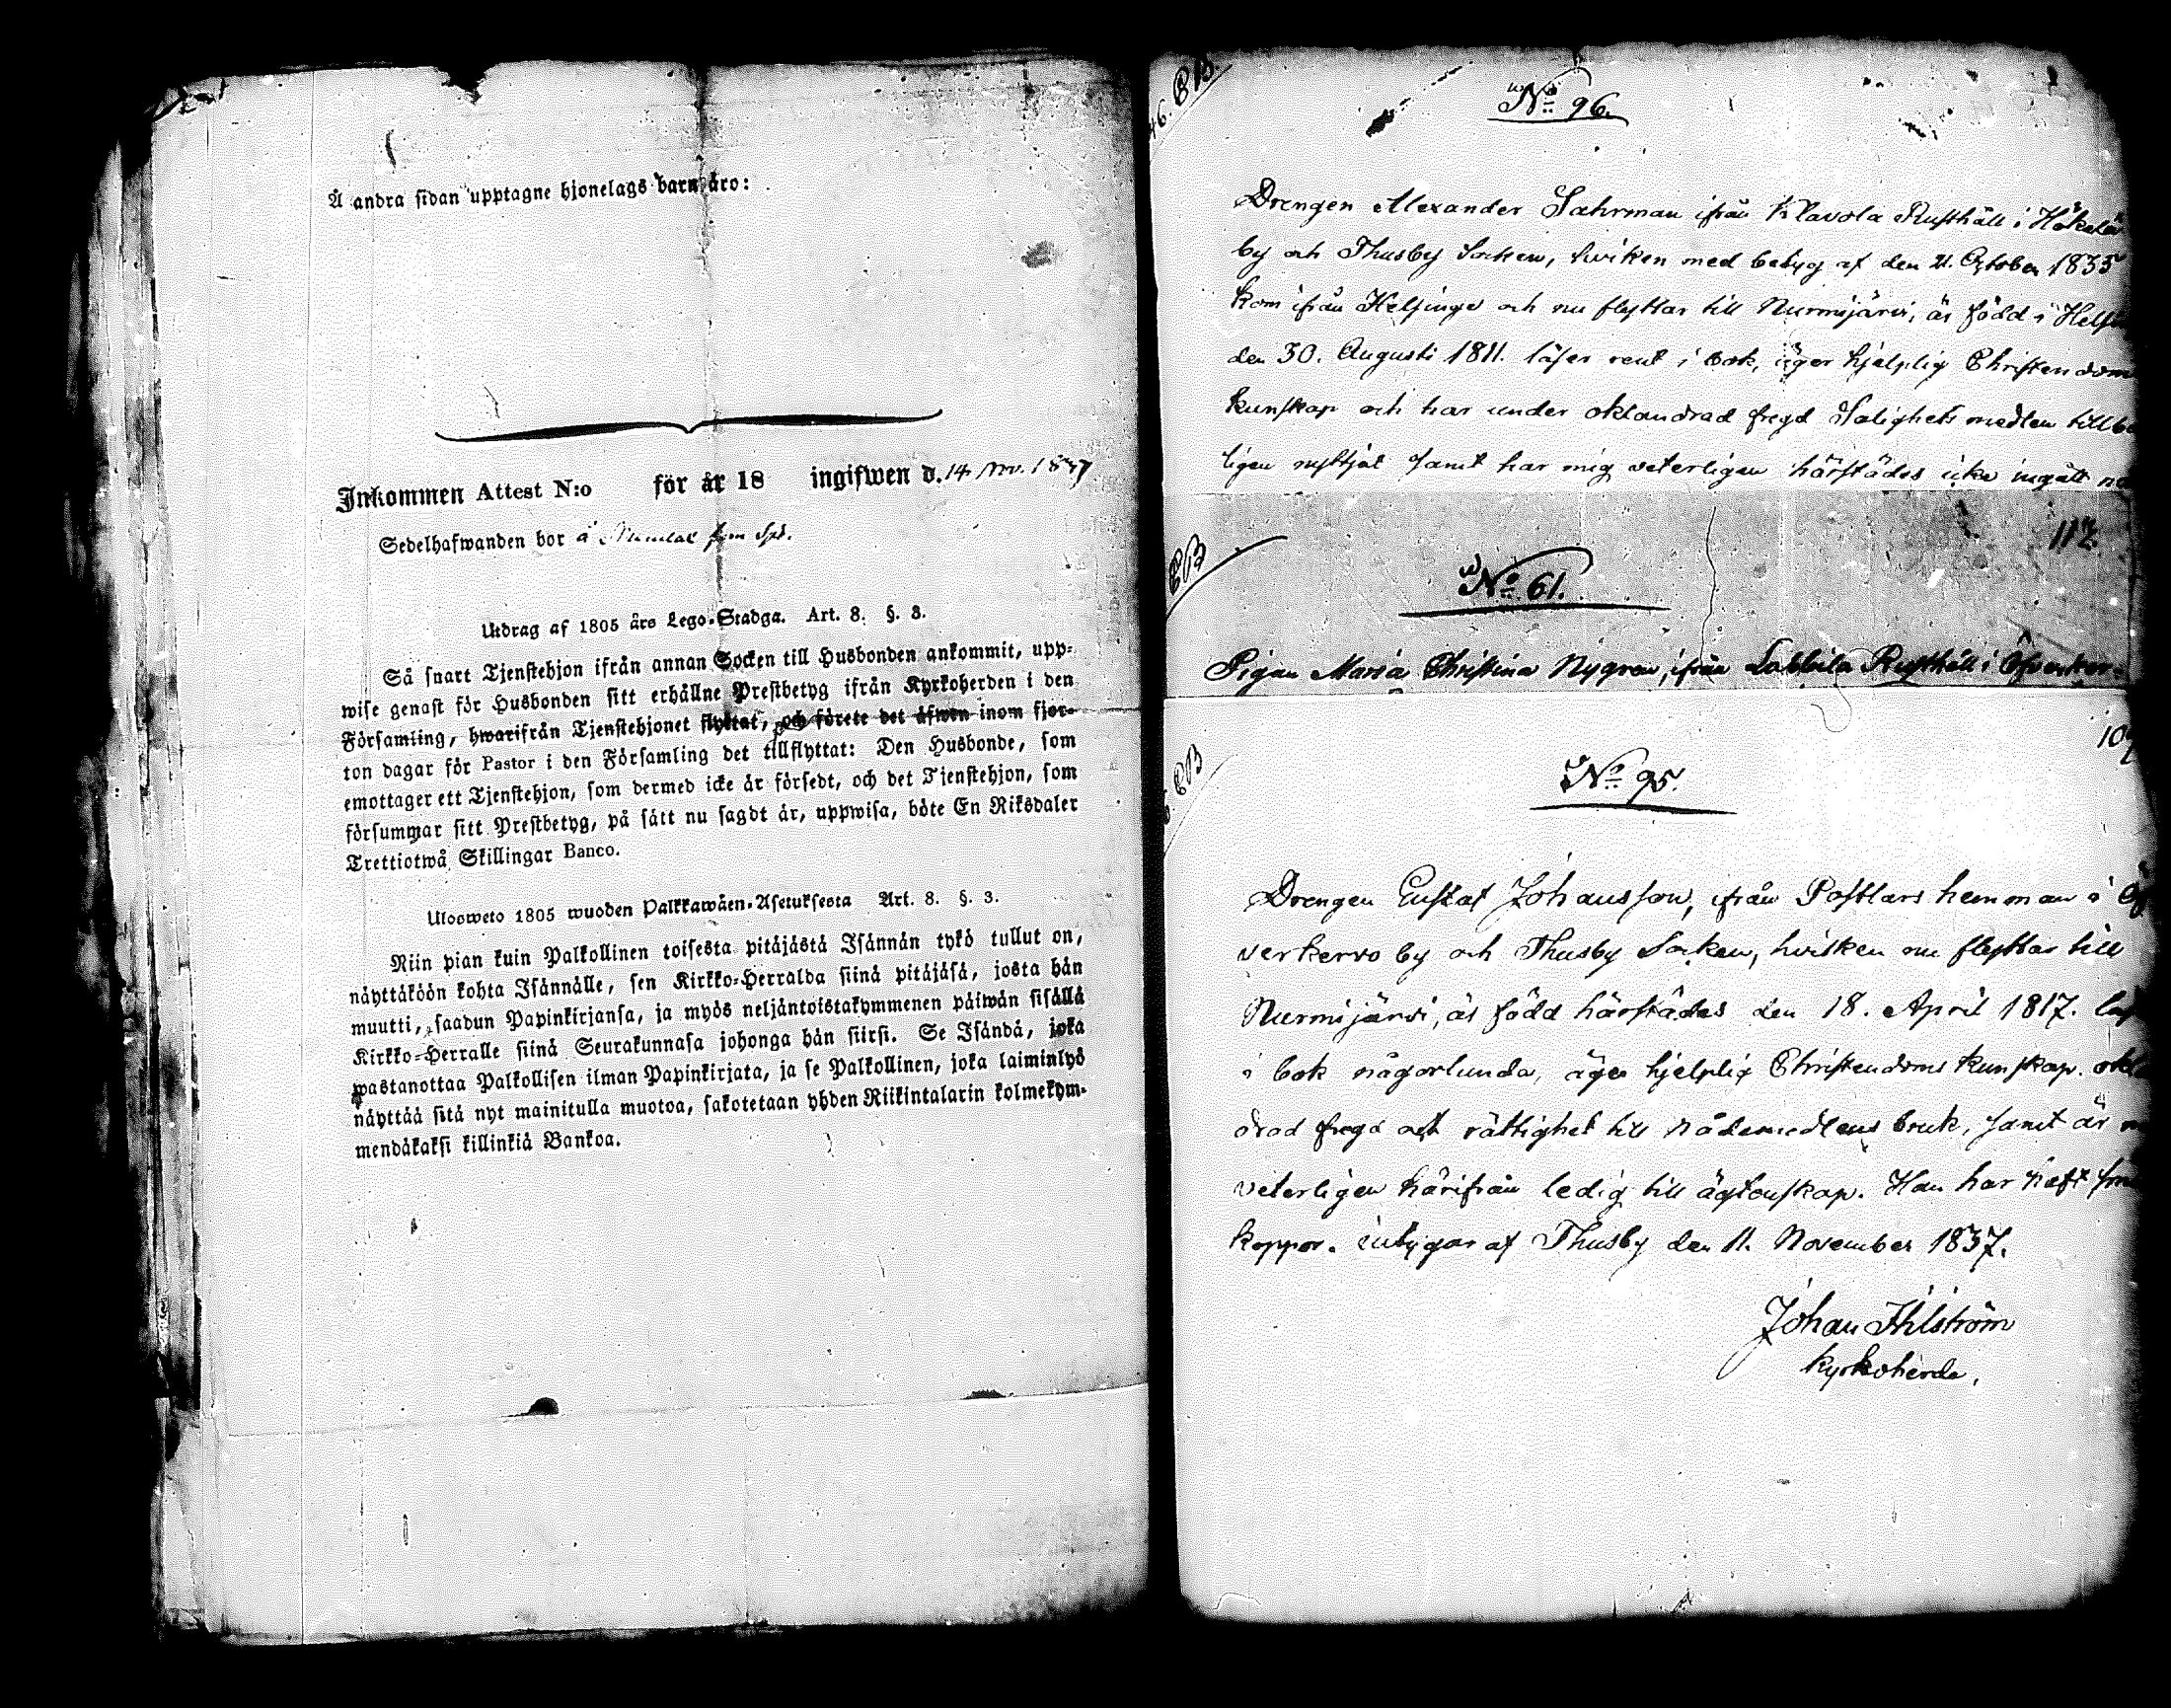 Å andra sidan upptagne hjonelags barn äro:
Inkommen Attest N:o för år 18 ingifwen d. 14 Nov. 1837
Sedelhafwanden bor å
Utdrag af 1805 års Lego-Stadga. Art. 8. §. 3.
Så snart Tjenstehjon ifrån annan Socken till Husbonden ankommit, upp-
wise genast för Husbonden sitt erhållne Prestbetyg ifrån Kyrkoherden i den
Församling, hwarifrån Tjenstehjonet flyttat, och förete det äfwen inom fjor-
ton dagar för Pastor i den Församling det tillflyttat: Den Husbonde, som
emottager ett Tjenstehjon, som dermed icke är försedt, och det Tjenstehjon, som
försummar sitt Prestbetyg, på sätt nu sagdt är, uppwisa, böte En Riksdaler
Trettiotwå Skillingar Banco.
Ulosweto 1805 wuoden Palkkawäen-Asetuksesta Art. 8. §. 3.
Niin pian kuin Palkollinen toisesta pitäjästä Isännän tykö tullut on,
näyttäköön kohta Isännälle, sen Kirkko-Herralda siinä pitäjäsä, josta hän
muutti, saadun Papinkirjansa, ja myös neljäntoistakymmenen päiwän sisällä
Kirkko-Herralle siinä Seurakunnasa johonga hän siirsi. Se Isändä, joka
wastanottaa Palkollisen ilman Papinkirjata, ja se Palkollinen, joka laiminlyö
näyttää sitä nyt mainitulla muotoa, sakotetaan yhden Riikintalarin kolmekym-
mendäkaksi killinkiä Bankoa.
46. EB
No 96.
Drengen Alexander Sahrman ifrån Klavola Rusthåll i
by och Thusby Socken, hvilken med betyg af den 21. October 1835
kom ifrån Helsinge och nu flyttar till Nurmijärvi, är född i
den 30. Augusti 1811. läser rent i bok, äger hjelplig Christendoms
kunskap och har under oklandrad fregd Salighets medlen
ligen nyttjat samt har mig veterligen härstädes icke ingått
112.
EB
No 61.
Pigan Maria Christina Nygren, ifrån Labbila Rusthåll i Öfverker-
107
EB
No 95.
Drengen Gustaf Johansson, ifrån Postlars hemman i Öf
verkervo by och Thusby Socken, hvilken nu flyttar till
Nurmijärvi, är född härstädes den 18. April 1817.
i bok någorlunda, äger hjelplig Christendoms kunskap.
drad fregd och rättighet till nådemedlens bruk, samt är
veterligen härifrån ledig till ägtenskap. Han har haft
koppor. intygar af Thusby den 11. November 1837.
Johan Ahlström
Kyrkoherde.